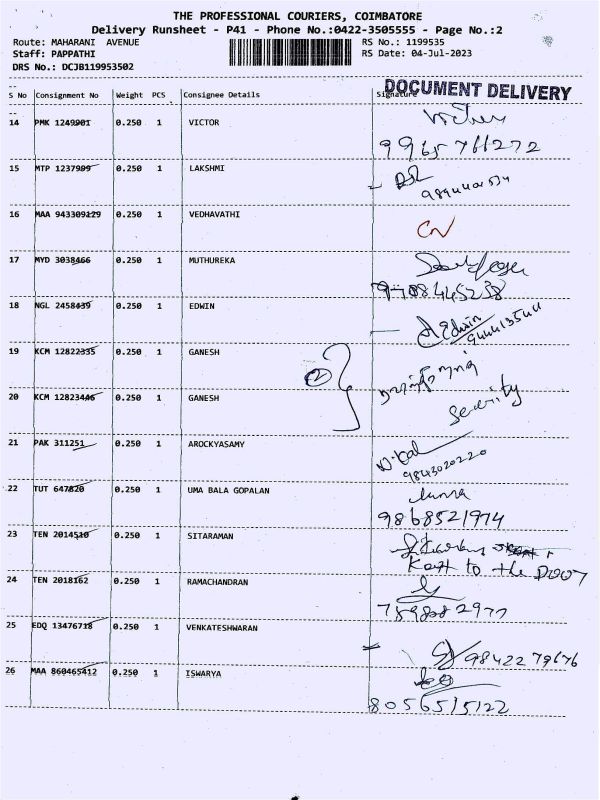 THE PROFESSIONAL COURIERS, COIMBATORE
Delivery Runsheet - P41 - Phone No.:0422-3505555 - Page No.:2
Route: MAHARANI AVENUE RS No.: 1199535
Staff: PAPPATHI RS Date: 04-Jul-2023
DRS No.: DCJB119953502
DOCUMENT DELIVERY
S No Consignment No Weight PCS Consignee Details Signature
14 PMK 1249901 0.250 1 VICTOR Victor
9965761272
15 MTP 1237989 0.250 1 LAKSHMI
16 MAA 943309129 0.250 1 VEDHAVATHI
17 MYD 3038466 0.250 1 MUTHUREKA
9708445238
18 NGL 2458439 0.250 1 EDWIN Edwin
9444413544
19 KCM 12822335 0.250 1 GANESH
2
20 KCM 12823446 0.250 1 GANESH Security
21 PAK 311251 0.250 1 AROCKYASAMY
9843020220
22 TUT 647820 0.250 1 UMA BALA GOPALAN
9868521974
23 TEN 2014510 0.250 1 SITARAMAN
Kept to the Door
24 TEN 2018162 0.250 1 RAMACHANDRAN
25 EDQ 13476718 0.250 1 VENKATESHWARAN
9842279676
26 MAA 860465412 0.250 1 ISWARYA
8056515122